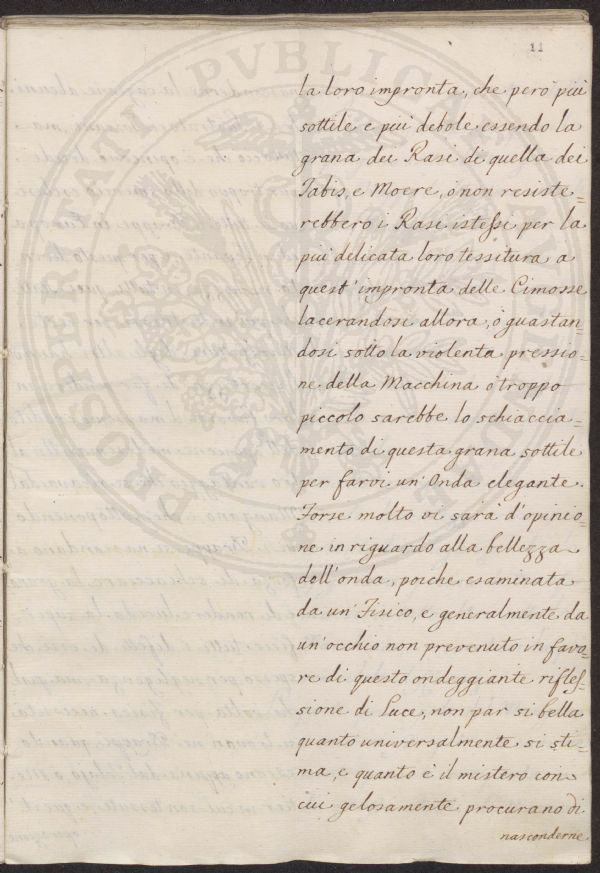 11
la loro impronta, che però più
sottile e più debole essendo la
grana dei Rasi di quella dei
Tabis, e Moere, ò non resiste=
rebbero i Rasi istessi per la
più delicata loro tessitura a
quest' impronta delle Cimosse
lacerandosi allora, ò guastan=
dosi sotto la violenta pressio=
ne della Macchina ò troppo
piccolo sarebbe lo schiaccia=
mento di questa grana sottile
per farvi un' Onda elegante.
Forse molto vi sarà d'opinio=
ne in riguardo alla bellezza
dell'onda, poiche esaminata
da un' Fisico, e generalmente da
un'occhio non prevenuto in favo=
re di questo ondeggiante rifles=
sione di Luce, non par si bella
quanto universalmente si sti=
ma, e quanto è il mistero con
cui gelosamente procurano di
nasconderne
PROSPERITATI PVBLICAE AVGENDAE